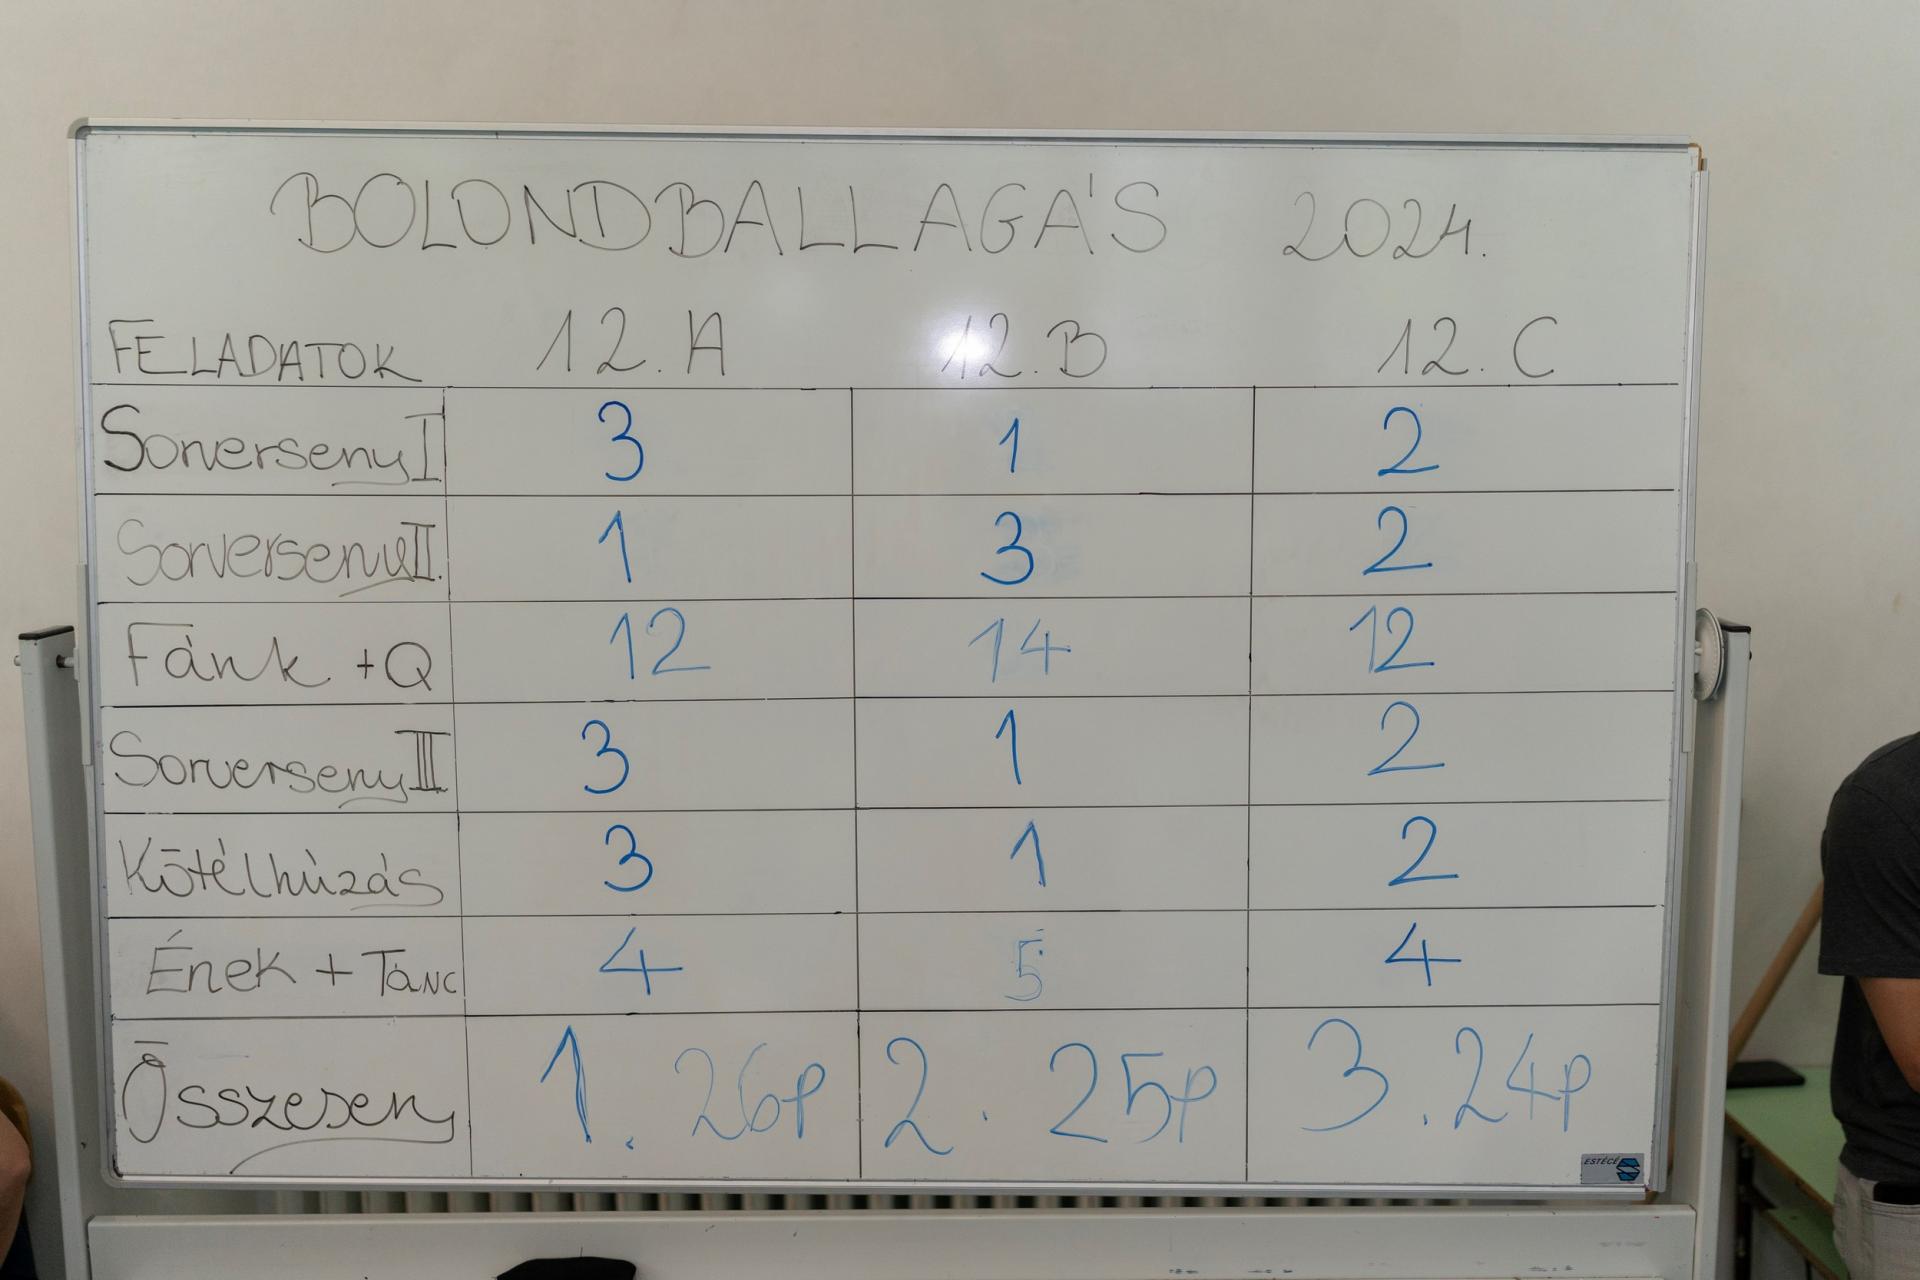 BOLONDBALLAGÁS 2024.
FELADATOK 12. A 12. B 12. C
Sorverseny I 3 1 2
Sorverseny II. 1 3 2
Fánk + Q 12 14 12
Sorverseny III 3 1 2
Kötélhúzás 3 1 2
Ének + Tánc 4 5 4
Összesen 1. 26p 2. 25p 3. 24p
ESTÉCÉ